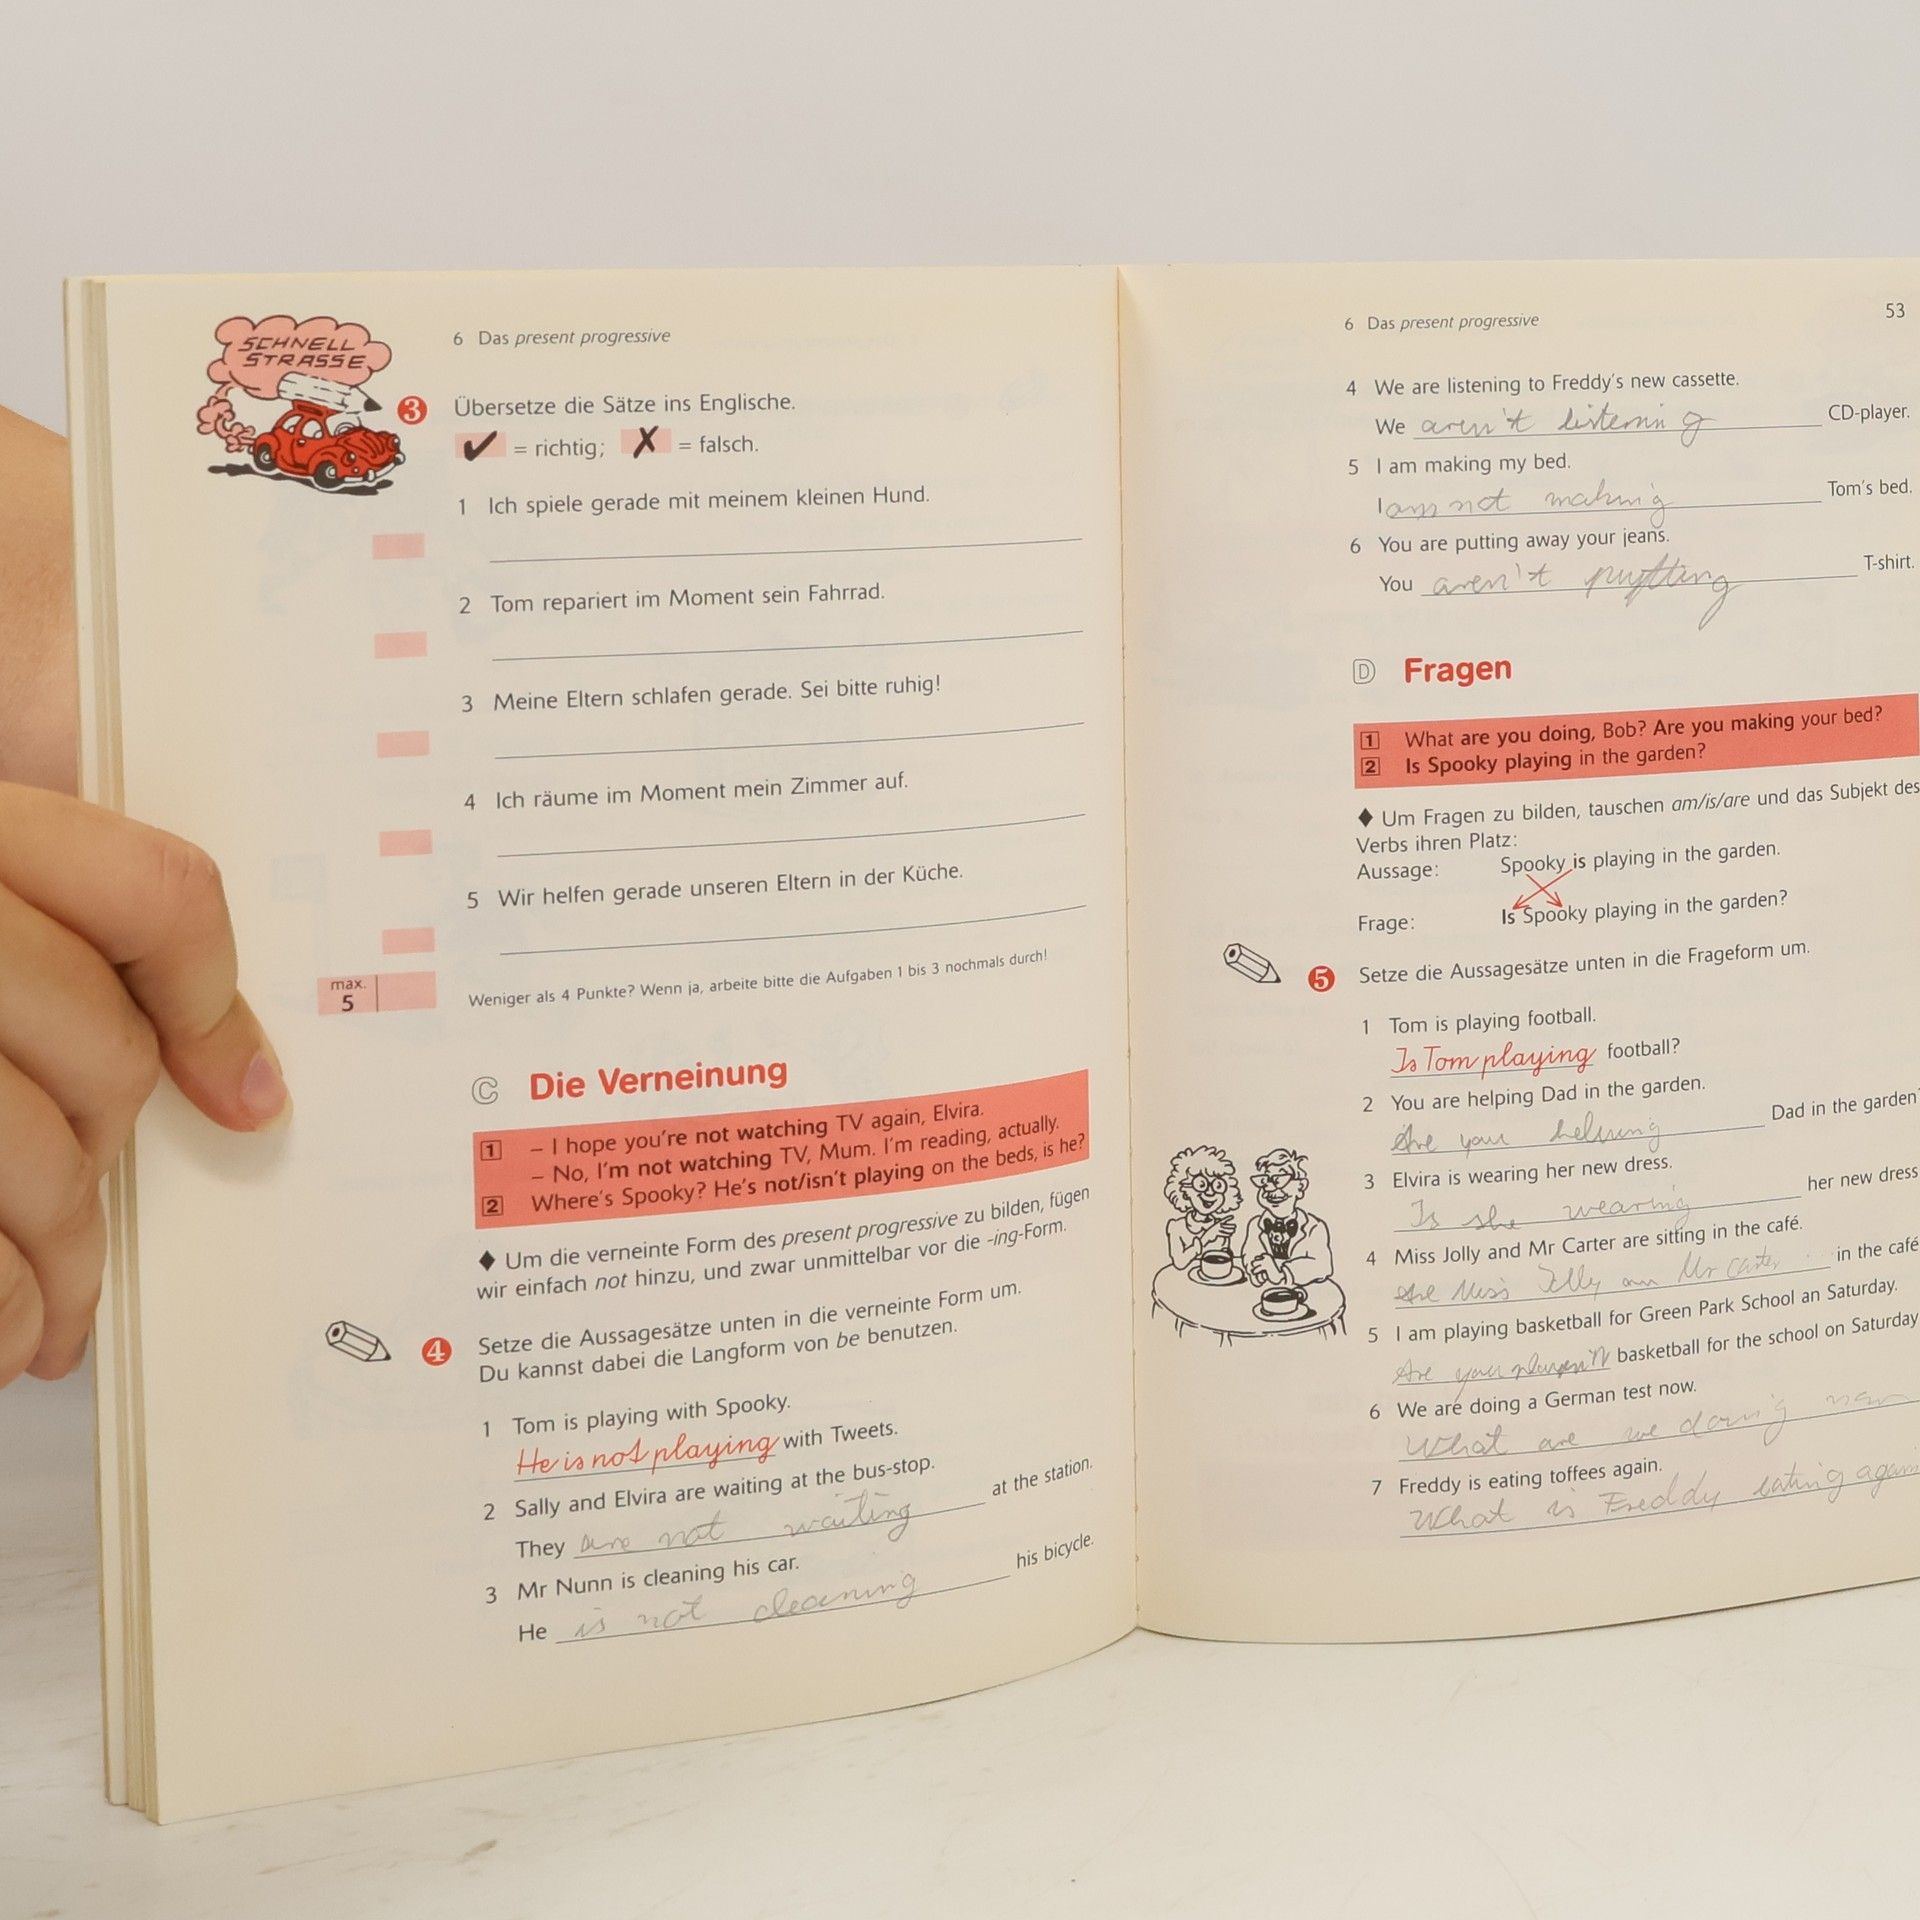 SCHNELL
STRASSE
6 Das present progressive
3 Übersetze die Sätze ins Englische.
✔ = richtig; ✗ = falsch.
1 Ich spiele gerade mit meinem kleinen Hund.
2 Tom repariert im Moment sein Fahrrad.
3 Meine Eltern schlafen gerade. Sei bitte ruhig!
4 Ich räume im Moment mein Zimmer auf.
5 Wir helfen gerade unseren Eltern in der Küche.
max.
5
Weniger als 4 Punkte? Wenn ja, arbeite bitte die Aufgaben 1 bis 3 nochmals durch!
C Die Verneinung
1 – I hope you're not watching TV again, Elvira.
– No, I'm not watching TV, Mum. I'm reading, actually.
2 Where's Spooky? He's not/isn't playing on the beds, is he?
♦ Um die verneinte Form des present progressive zu bilden, fügen
wir einfach not hinzu, und zwar unmittelbar vor die -ing-Form.
4 Setze die Aussagesätze unten in die verneinte Form um.
Du kannst dabei die Langform von be benutzen.
1 Tom is playing with Spooky.
He is not playing with Tweets.
2 Sally and Elvira are waiting at the bus-stop.
They are not waiting at the station.
3 Mr Nunn is cleaning his car.
He is not cleaning his bicycle.
6 Das present progressive 53
4 We are listening to Freddy's new cassette.
We aren't listening CD-player.
5 I am making my bed.
I am not making Tom's bed.
6 You are putting away your jeans.
You aren't putting T-shirt.
D Fragen
1 What are you doing, Bob? Are you making your bed?
2 Is Spooky playing in the garden?
♦ Um Fragen zu bilden, tauschen am/is/are und das Subjekt des
Verbs ihren Platz:
Aussage: Spooky is playing in the garden.
Frage: Is Spooky playing in the garden?
5 Setze die Aussagesätze unten in die Frageform um.
1 Tom is playing football.
Is Tom playing football?
2 You are helping Dad in the garden.
Are you helping Dad in the garden?
3 Elvira is wearing her new dress.
Is she wearing her new dress
4 Miss Jolly and Mr Carter are sitting in the café.
Are Miss Jolly Mr Carter in the café
5 I am playing basketball for Green Park School an Saturday.
Are you basketball for the school on Saturday
6 We are doing a German test now.
What are we doing now
7 Freddy is eating toffees again.
What is Freddy eating again